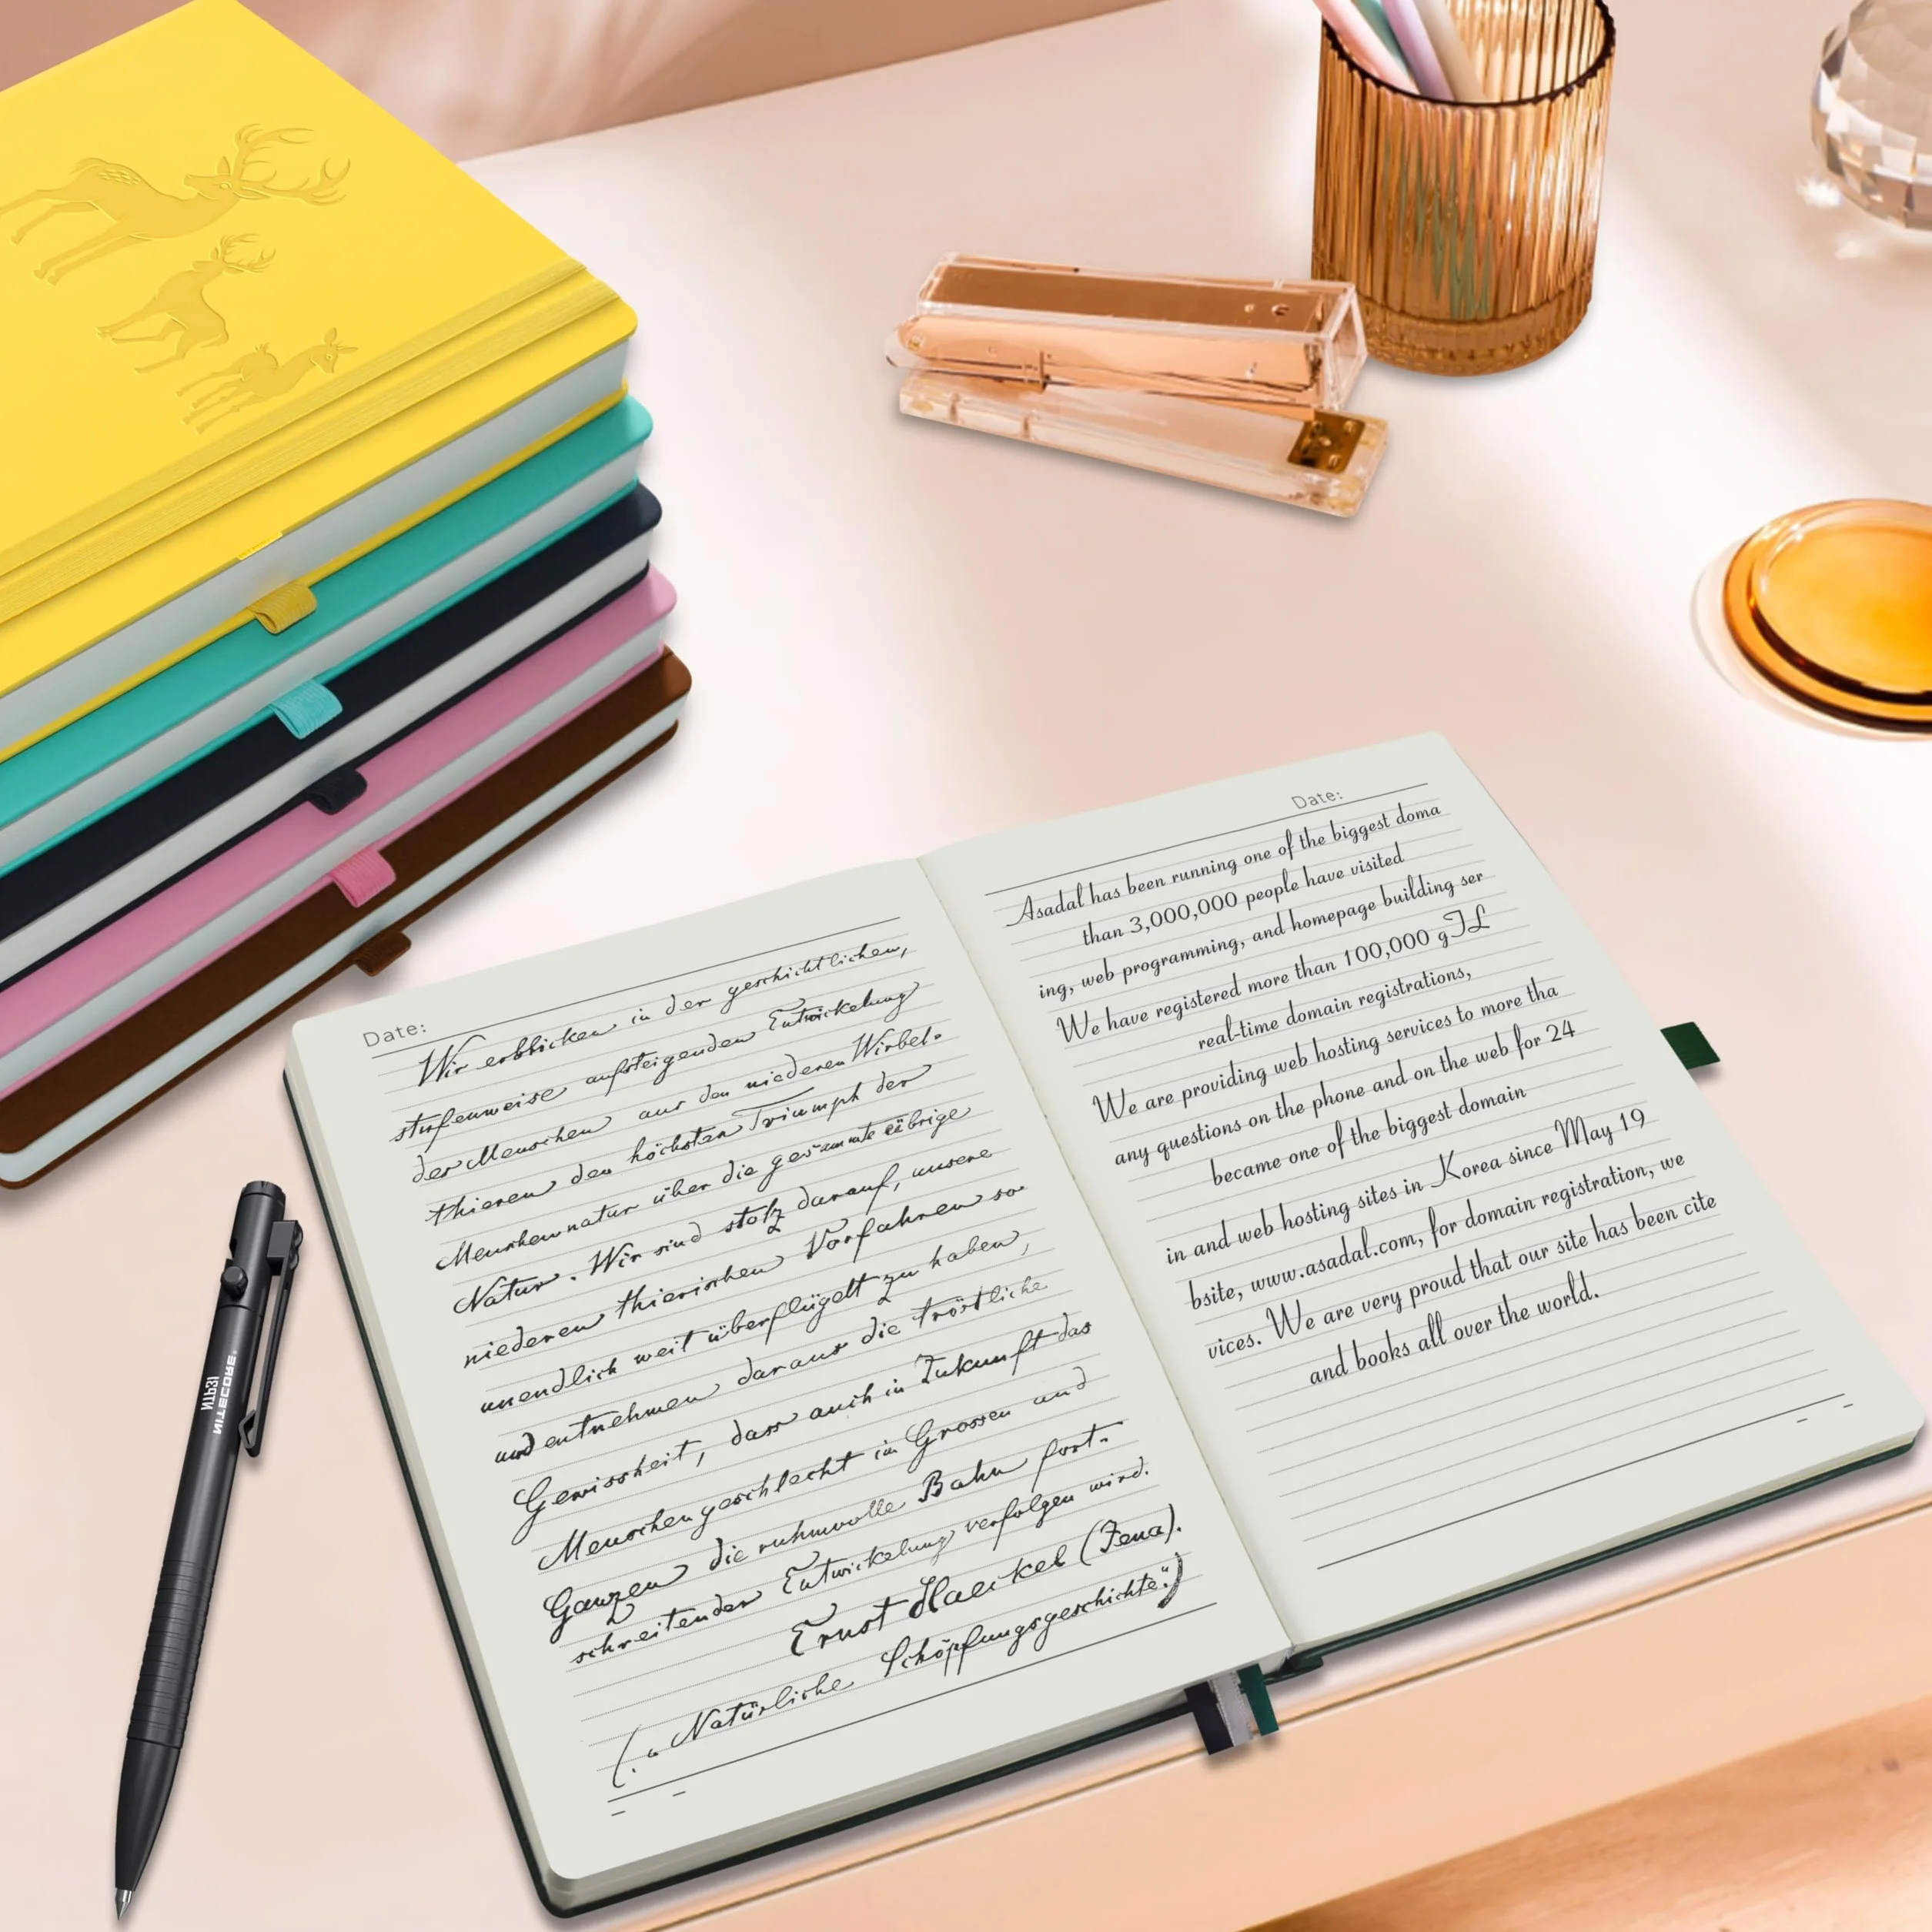 Date:
Wir erblicken in der geschichtlichen,
stufenweise aufsteigenden Entwickelung
der Menschen aus den niederen Wirbel-
thieren den höchsten Triumph der
Menschennatur über die gesammte übrige
Natur. Wir sind stolz darauf, unsere
niederen thierischen Vorfahren so
unendlich weit überflügelt zu haben,
und entnehmen daraus die tröstliche
Gewissheit, dass auch in Zukunft das
Menschengeschlecht im Grossen und
Ganzen die ruhmvolle Bahn fort-
schreitender Entwickelung verfolgen wird.
Ernst Haeckel (Jena).
(„Natürliche Schöpfungsgeschichte.")
Date:
Asadal has been running one of the biggest doma
than 3,000,000 people have visited
ing, web programming, and homepage building ser
We have registered more than 100,000 gTL
real-time domain registrations,
We are providing web hosting services to more tha
any questions on the phone and on the web for 24
became one of the biggest domain
in and web hosting sites in Korea since May 19
bsite, www.asadal.com, for domain registration, we
vices. We are very proud that our site has been cite
and books all over the world.
NITECORE®
NTP31